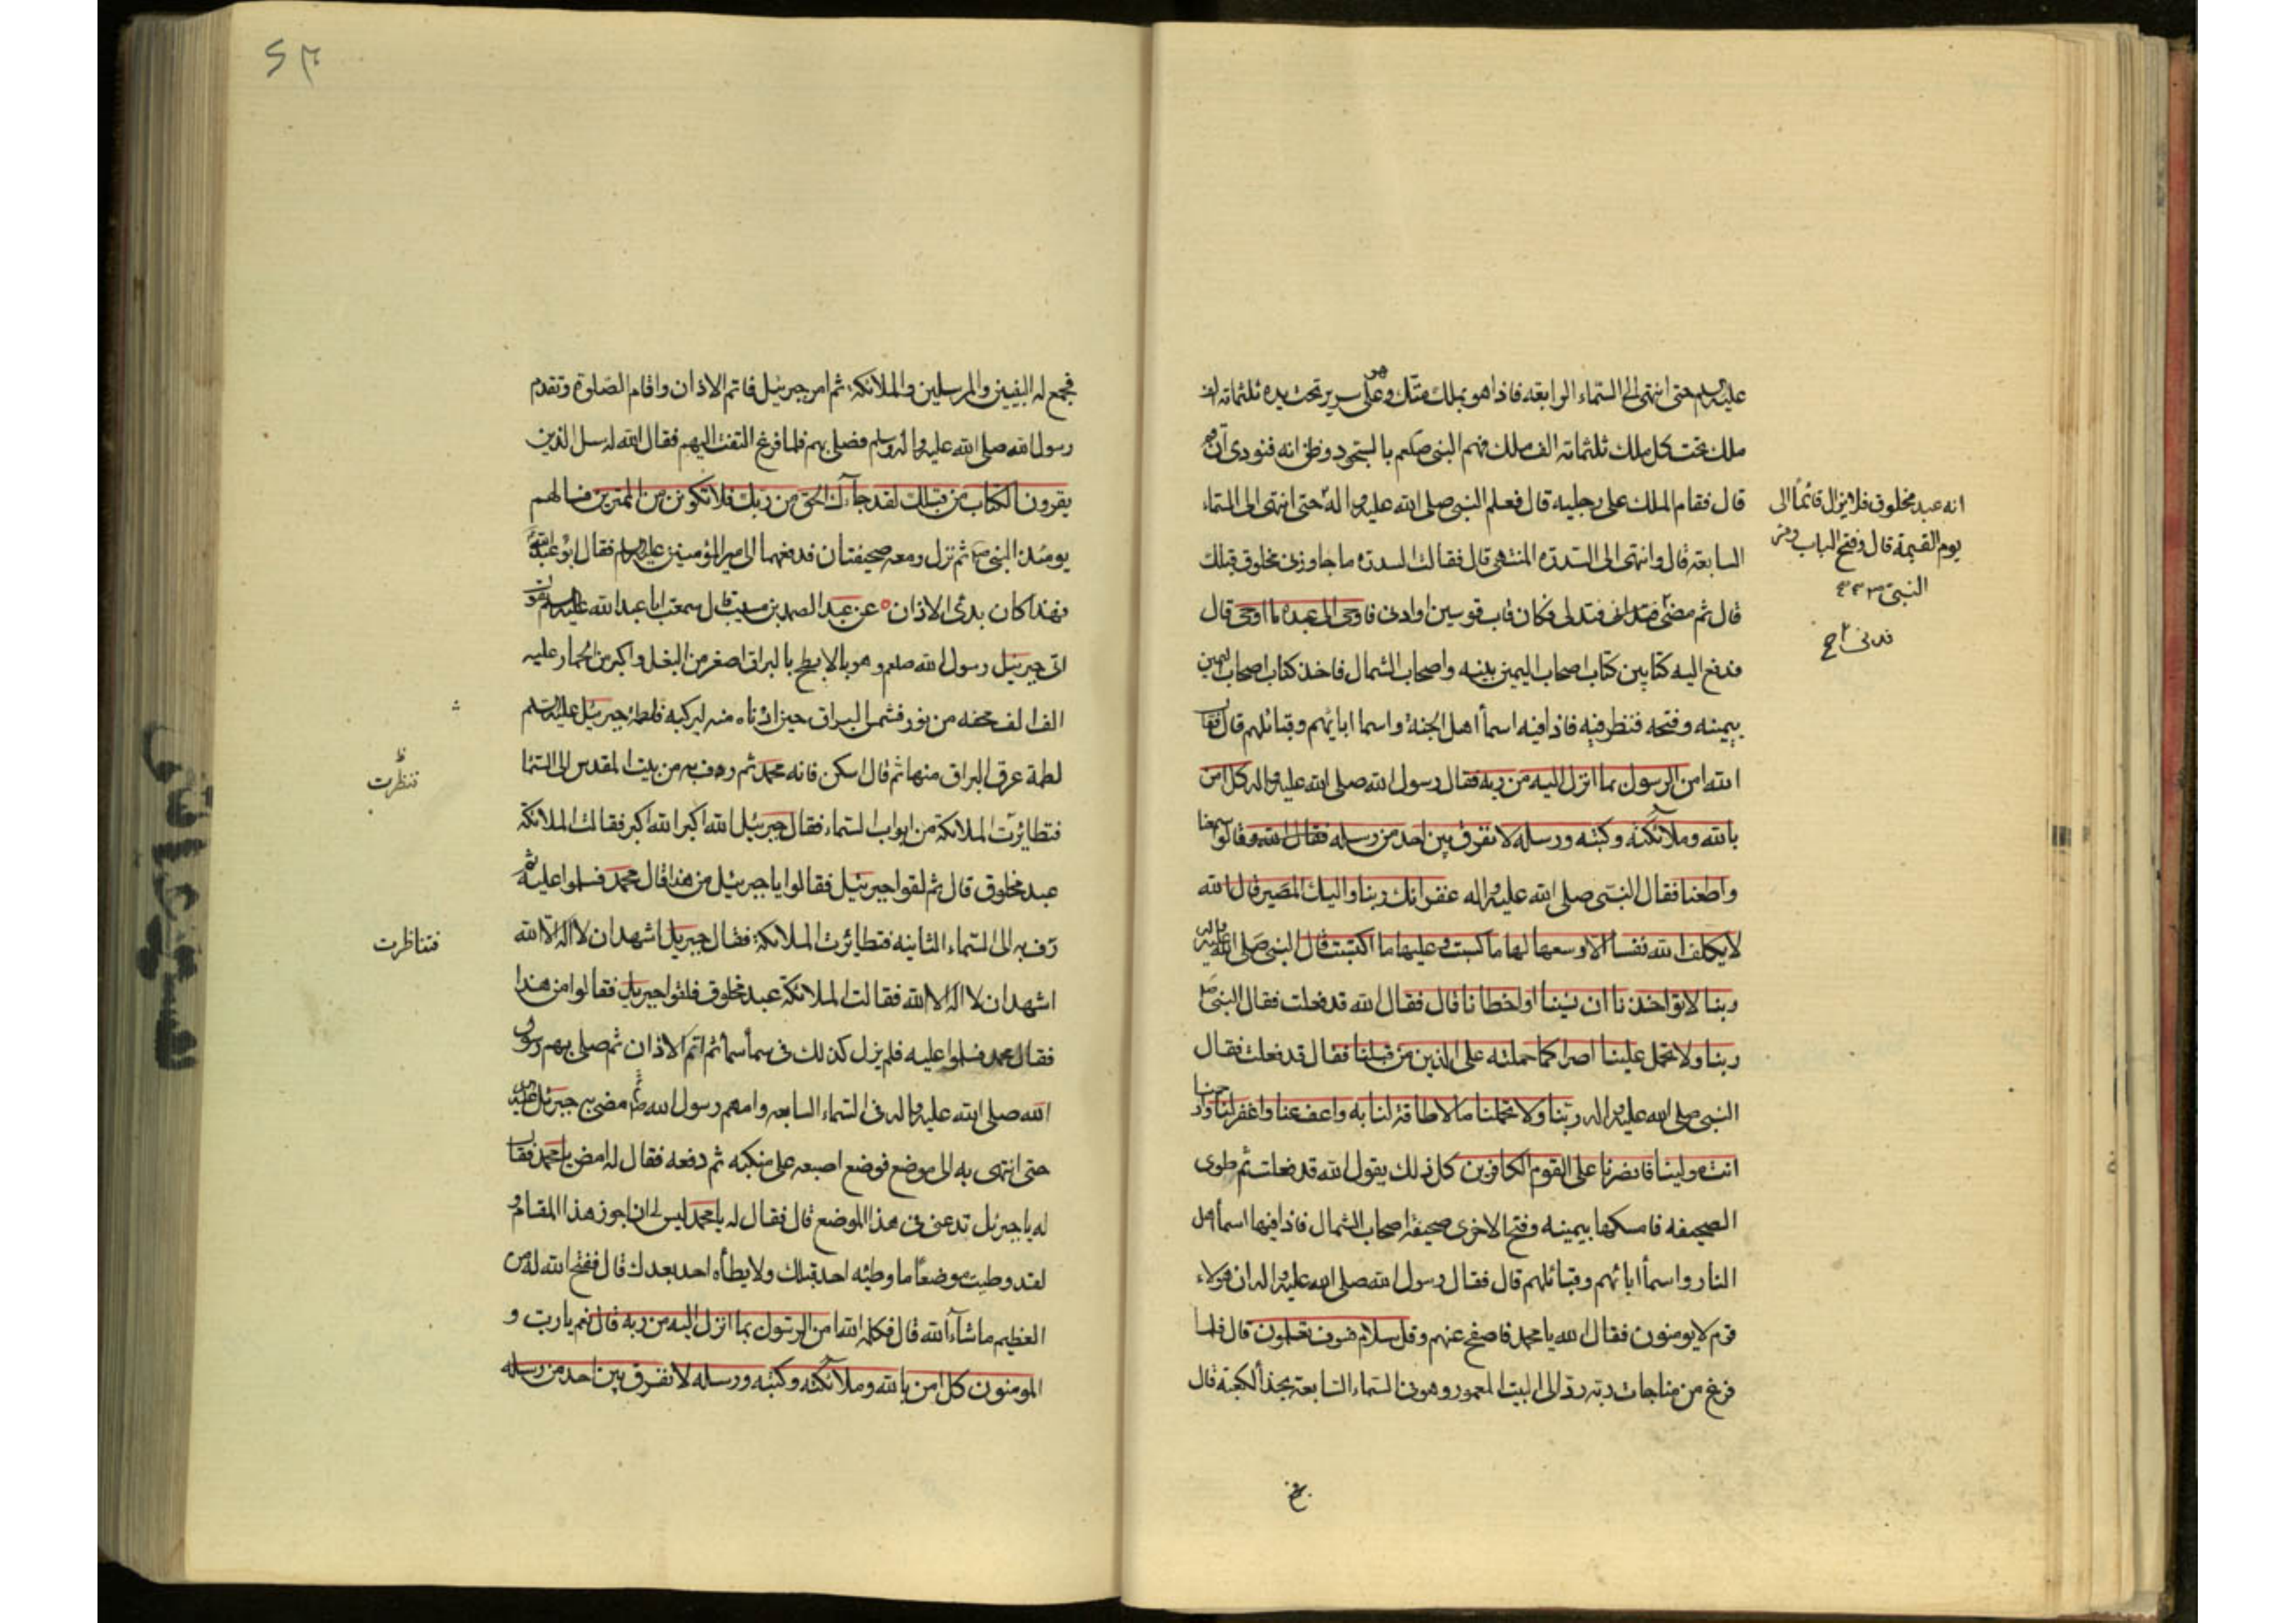 عليه السلم حتى انتهى الى السماء الرابعه فاذا هو بملك متك وهو على سرير تحت يده ثلثمائه الف
ملك تحت كل ملك ثلثمائه الف ملك فهم النبى صلعم بالسجود وظن انه فنودى ان قم
قال فقام الملك على رجليه قال فعلم النبى صلى الله عليه واله حتى انتهى الى السماء
انه عبد مخلوق فلا يزال قائما الى
يوم القيمة قال وفتح الباب ومر
النبى
السابعه قال وانتهى الى السدره المنتهى قال فقالت السدره ما جاوزنى مخلوق قبلك
قال ثم مضى فتدانى فتدلى فكان قاب قوسين او ادنى فاوحى الى عبده ما اوحى قال
فدنى خ
فدفع اليه كتابين كتاب اصحاب اليمين بيمينه واصحاب الشمال فاخذ كتاب اصحاب اليمين
بيمينه وفتحه فنظر فيه فاذا فيه اسمأ اهل الجنة واسما ابائهم وقبائلهم قال فقال
الله امن الرسول بما انزل اليه من ربه فقال رسول الله صلى الله عليه واله كل امن
بالله وملائكته وكتبه ورسله لا نفرق بين احد من رسله فقال الله وقالوا سمعنا
واطعنا فقال النبى صلى الله عليه واله غفرانك ربنا واليك المصير قال الله
لا يكلف الله نفسا الا وسعها لها ما كسبت وعليها ما اكتسبت قال النبى صلى الله عليه واله
ربنا لا تواخذنا ان نسينا او اخطانا قال فقال الله قد فعلت فقال النبى ص
ربنا ولا تحمل علينا اصرا كما حملته على الذين من قبلنا فقال قد فعلت فقال
النبى صلى الله عليه واله ربنا ولا تحملنا ما لا طاقة لنا به واعف عنا واغفر لنا وارحمنا
انت مولينا فانصرنا على القوم الكافرين كل ذلك يقول الله قد فعلت ثم طوى
الصحيفه فامسكها بيمينه وفتح الاخرى صحيفة اصحاب الشمال فاذا فيها اسمأ اهل
النار واسمأ ابائهم وقبائلهم قال فقال رسول الله صلى الله عليه واله ان هولاء
قوم لا يومنون فقال الله يا محمد فاصفح عنهم وقل سلام فسوف تعلمون قال فلما
فرغ من مناجات ربه رد الى البيت المعمور وهو فى السماء السابعة بحذأ الكعبة قال
فجمع له النبيين والمرسلين والملائكة ثم امر جبرئيل فاتم الاذان واقام الصلوة وتقدم
رسول الله صلى الله عليه واله وسلم فصلى بهم فلما فرغ التفت اليهم فقال الله له سل الذين
يقرون الكتاب من قبلك لقد جاءك الحق من ربك فلا تكونن من الممترين فسالهم
يومئذ النبى ص ثم نزل ومعه صحيفتان فدفعهما الى امير المؤمنين عليه السلم فقال ابو عبد الله
فهذا كان بدئ الاذان عن عبد الصمد بن قال سمعت ابا عبد الله عليه السلم يقول
اتى جبرئيل رسول الله صلعم وهو بالابطح بالبراق اصغر من البغل واكبر من الحمار عليه
الف الف محفه من نور فشمس البراق حين ادناه منه ليركبه فلطمه جبرئيل عليه السلم
لطمة عرق البراق منها ثم قال اسكن فانه محمد ثم رف به من بيت المقدس الى السما
فنظرت
فتطائرت الملائكة من ابواب السماء فقال جبرئيل الله اكبر الله اكبر فقالت الملائكة
عبد مخلوق قال ثم لقوا جبرئيل فقالوا يا جبرئيل من هذا قال محمد فسلموا عليه ثم
زف به الى السماء الثانيه فتطائرت الملائكة فقال جبريل اشهد ان لا اله الا الله
فتناظرت
اشهد ان لا اله الا الله فقالت الملائكة عبد مخلوق فلقوا جبريل فقالوا من هذا
فقال محمد فسلموا عليه فلم يزل كذلك فى سمأ سمأ ثم اتم الاذان ثم صلى بهم رسول
الله صلى الله عليه واله فى السماء السابعه وامهم رسول الله ص ثم مضى به جبرئيل عليه
حتى انتهى به الى موضع فوضع اصبعه على منكبه ثم دفعه فقال له امض يا محمد فقال
له يا جبرئيل تدعنى فى هذا الموضع قال فقال له يا محمد ليس لى ان اجوز هذا المقام و
لقد وطيت موضعا ما وطئه احد قبلك ولا يطأه احد بعدك قال ففتح الله له من
العظيم ما شآء الله قال فكلمه الله امن الرسول بما انزل اليه من ربه قال نعم يا رب و
المومنون كل امن بالله وملائكته وكتبه ورسله لا نفرق بين احد من رسله